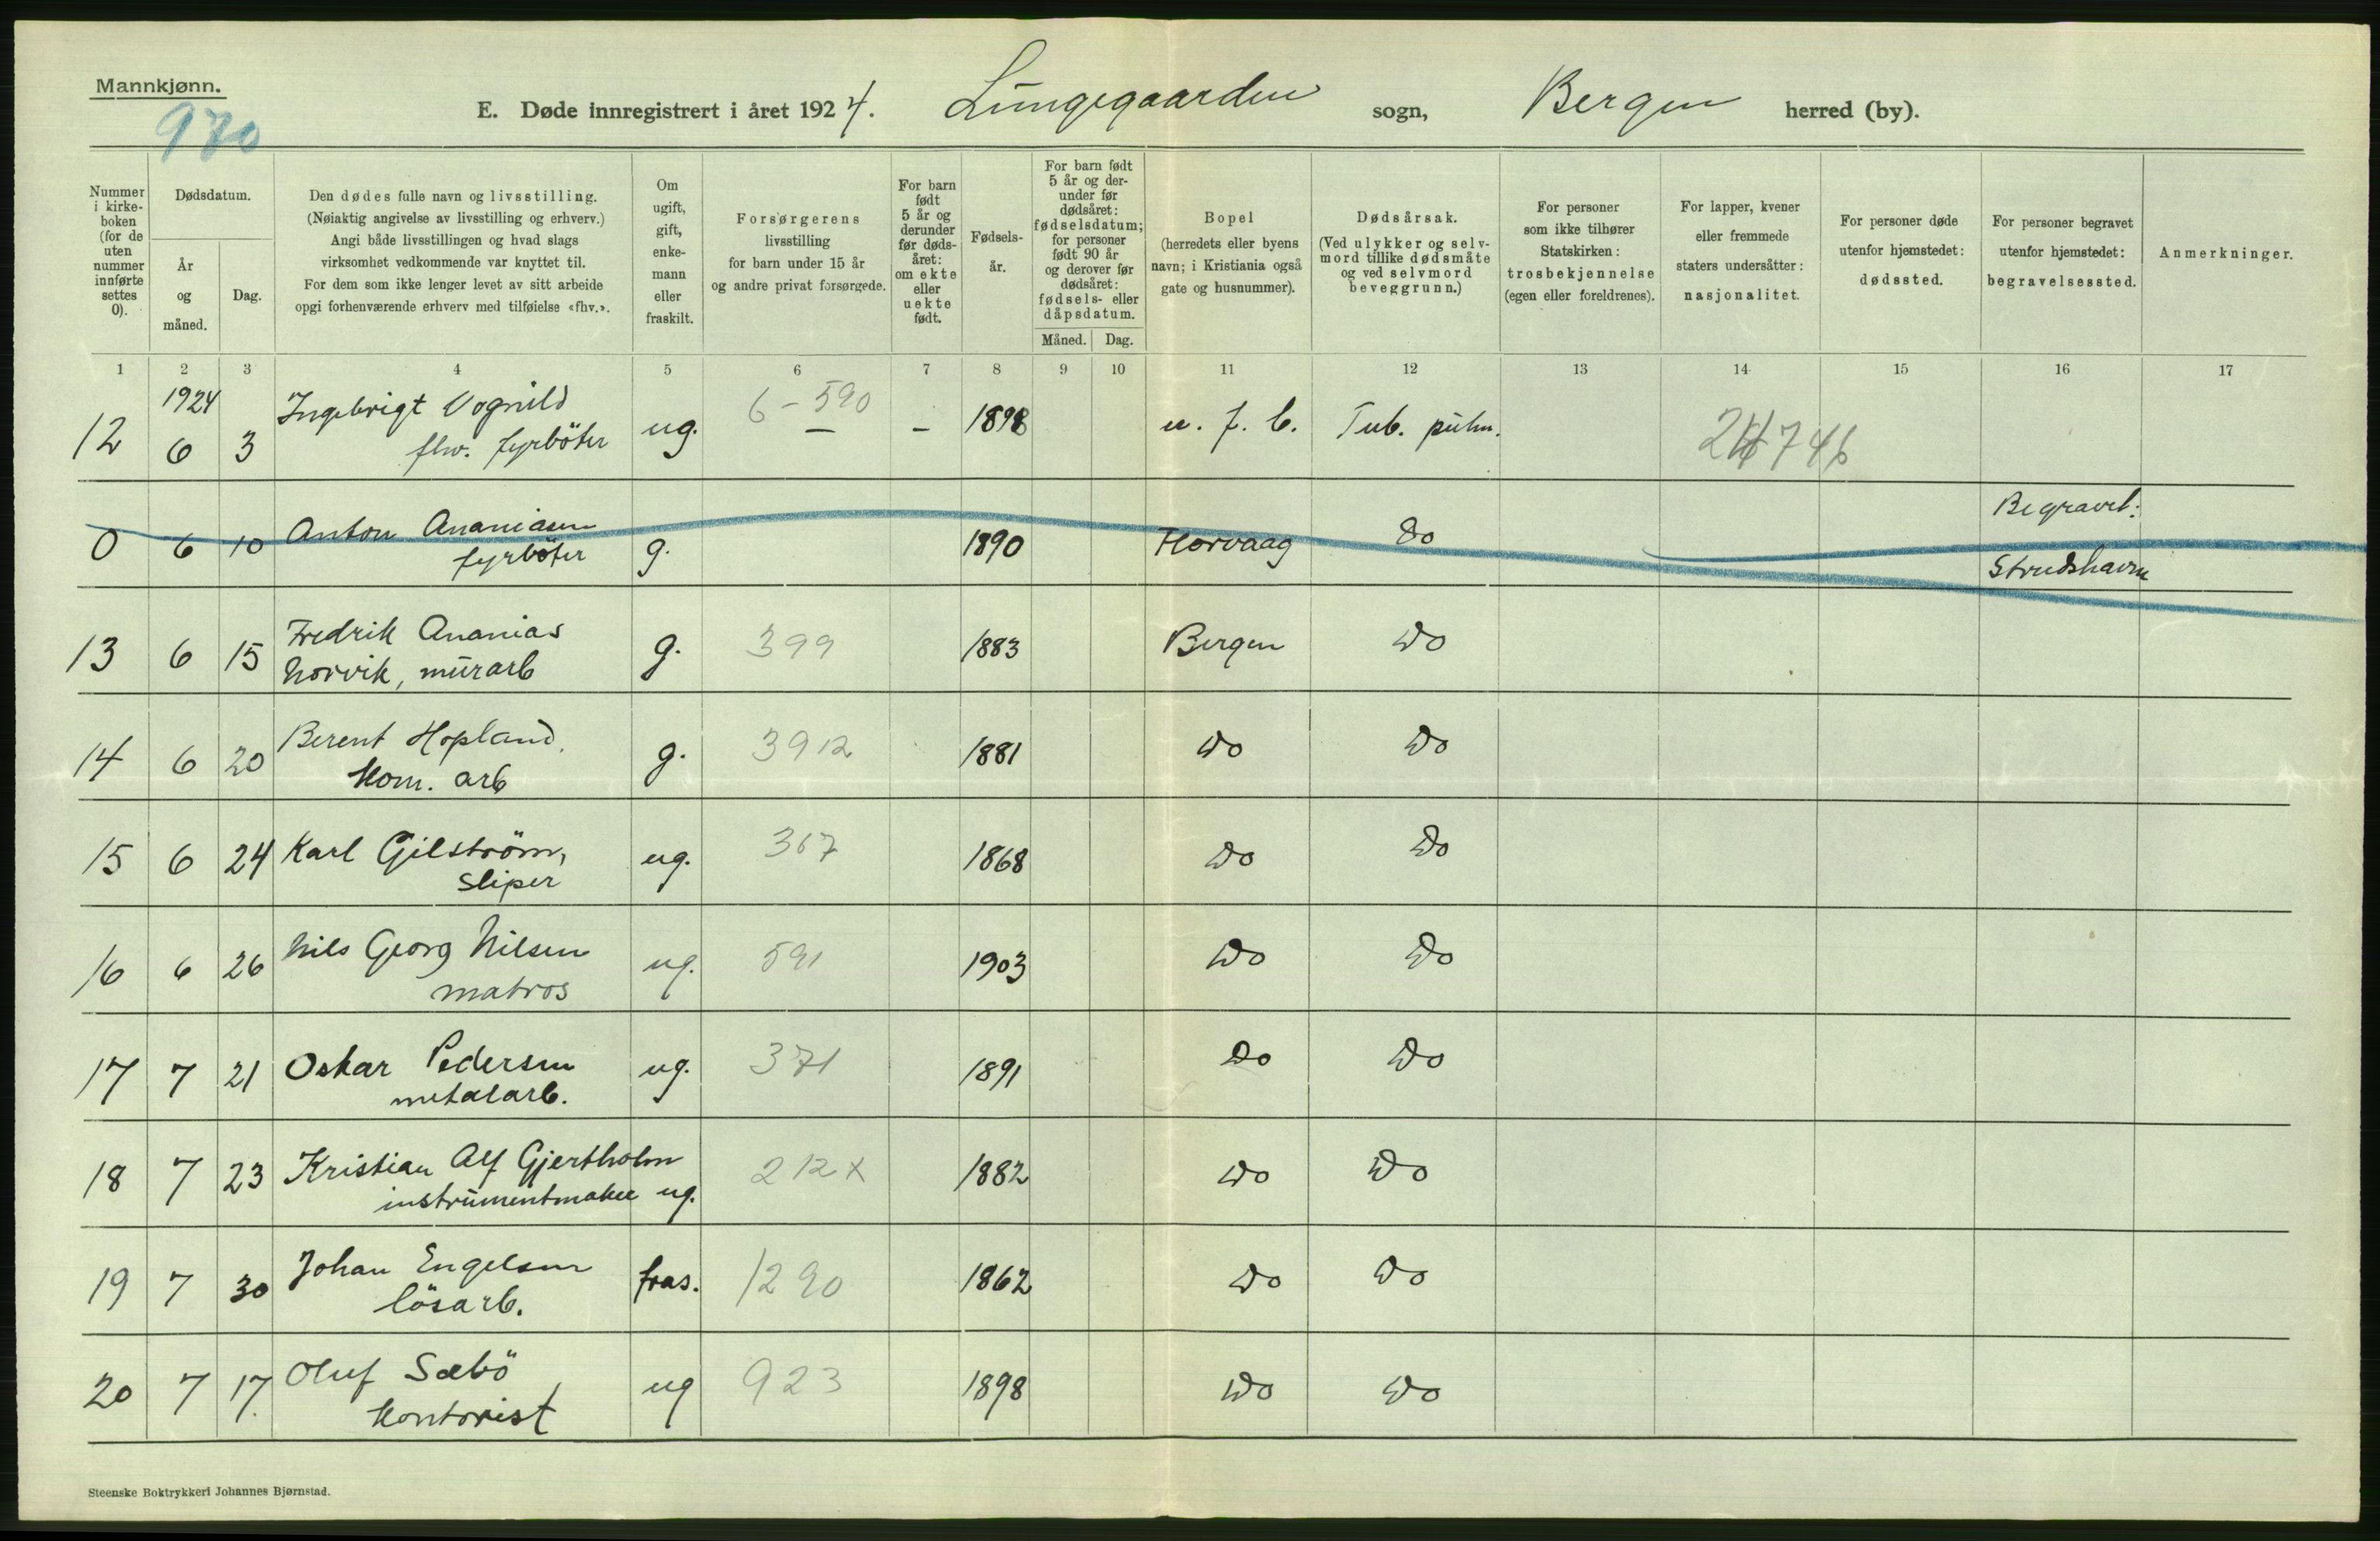 Mannkjønn.
970
E. Døde innregistrert i året 1924. Lungegaarden sogn, Bergen herred (by).
Nummer i kirke- boken (for de uten nummer innførte settes 0).
Dødsdatum.
År og måned.
Dag.
Den dødes fulle navn og livsstilling.
(Nøiaktig angivelse av livsstilling og erhverv.)
Angi både livsstillingen og hvad slags
virksomhet vedkommende var knyttet til.
For dem som ikke lenger levet av sitt arbeide
opgi forhenværende erhverv med tilføielse «fhv.».
Om ugift, gift, enke- mann eller fraskilt.
Forsørgerens
livsstilling
for barn under 15 år
og andre privat forsørgede.
For barn født 5 år og derunder før døds- året: om ekte eller uekte født.
Fødsels- år.
For barn født 5 år og der- under før dødsåret: fødselsdatum; for personer født 90 år og derover før dødsåret: fødsels- eller dåpsdatum.
Måned. Dag.
Bopel
(herredets eller byens
navn; i Kristiania også
gate og husnummer).
Dødsårsak.
(Ved ulykker og selv-
mord tillike dødsmåte
og ved selvmord
beveggrunn.)
For personer
som ikke tilhører
Statskirken:
trosbekjennelse
(egen eller foreldrenes).
For lapper, kvener
eller fremmede
staters undersåtter:
nasjonalitet.
For personer døde
utenfor hjemstedet:
dødssted.
For personer begravet
utenfor hjemstedet:
begravelsessted.
Anmerkninger.
1 2 3 4 5 6 7 8 9 10 11 12 13 14 15 16 17
1924 Ingebrigt Vognild 6-590
12 6 3 fhv. fyrböter ug. — – 1898 u. f. b. Tub. pulm.
Anton Ananiasen Do Begravet:
0 6 10 fyrböter g. 1890 Horvaag Strudshavn
Fredrik Ananias
13 6 15 Norvik, murarb g. 399 1883 Bergen Do
Berent Hopland,
14 6 20 Kom. arb g. 3912 1881 Do Do
15 6 24 Karl Gilström, ug. 367 1868 Do Do
Sliper
Nils Georg Nilsen
16 6 26 matros ug. 591 1903 Do Do
17 7 21 Oskar Pedersen ug. 371 1891 Do Do
metalarb.
18 7 23 Kristian Alf Gjertholm 212 x 1882 Do Do
instrumentmaker ug.
Johan Engelsen
19 7 30 lösarb. fras. 1290 1862 Do Do
Oluf Sæbö
20 7 17. Kontorist ug 923 1898 Do Do
Steenske Boktrykkeri Johannes Bjørnstad.